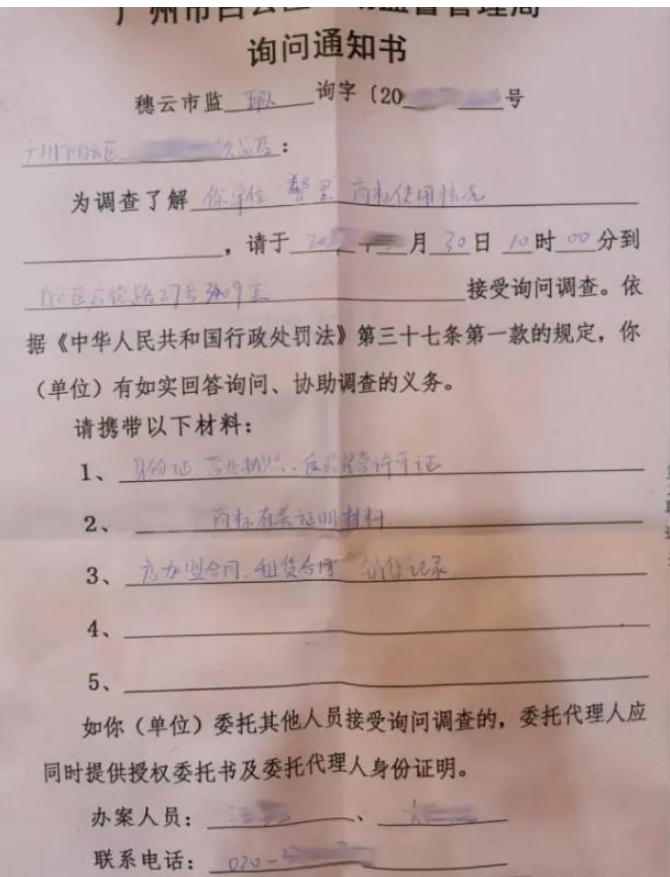 广州市白云区市场监督管理局
询问通知书
穗云市监 询字〔20 号
：
为调查了解 你单位 商标使用情况
，请于 20 月 30 日 10 时 00 分到
路27号309室 接受询问调查。依
据《中华人民共和国行政处罚法》第三十七条第一款的规定，你
（单位）有如实回答询问、协助调查的义务。
请携带以下材料：
1、身份证、营业执照、食品经营许可证
2、商标有关证明材料
3、加盟合同、租赁合同 销售记录
4、
5、
如你（单位）委托其他人员接受询问调查的，委托代理人应
同时提供授权委托书及委托代理人身份证明。
办案人员： 、
联系电话：020-